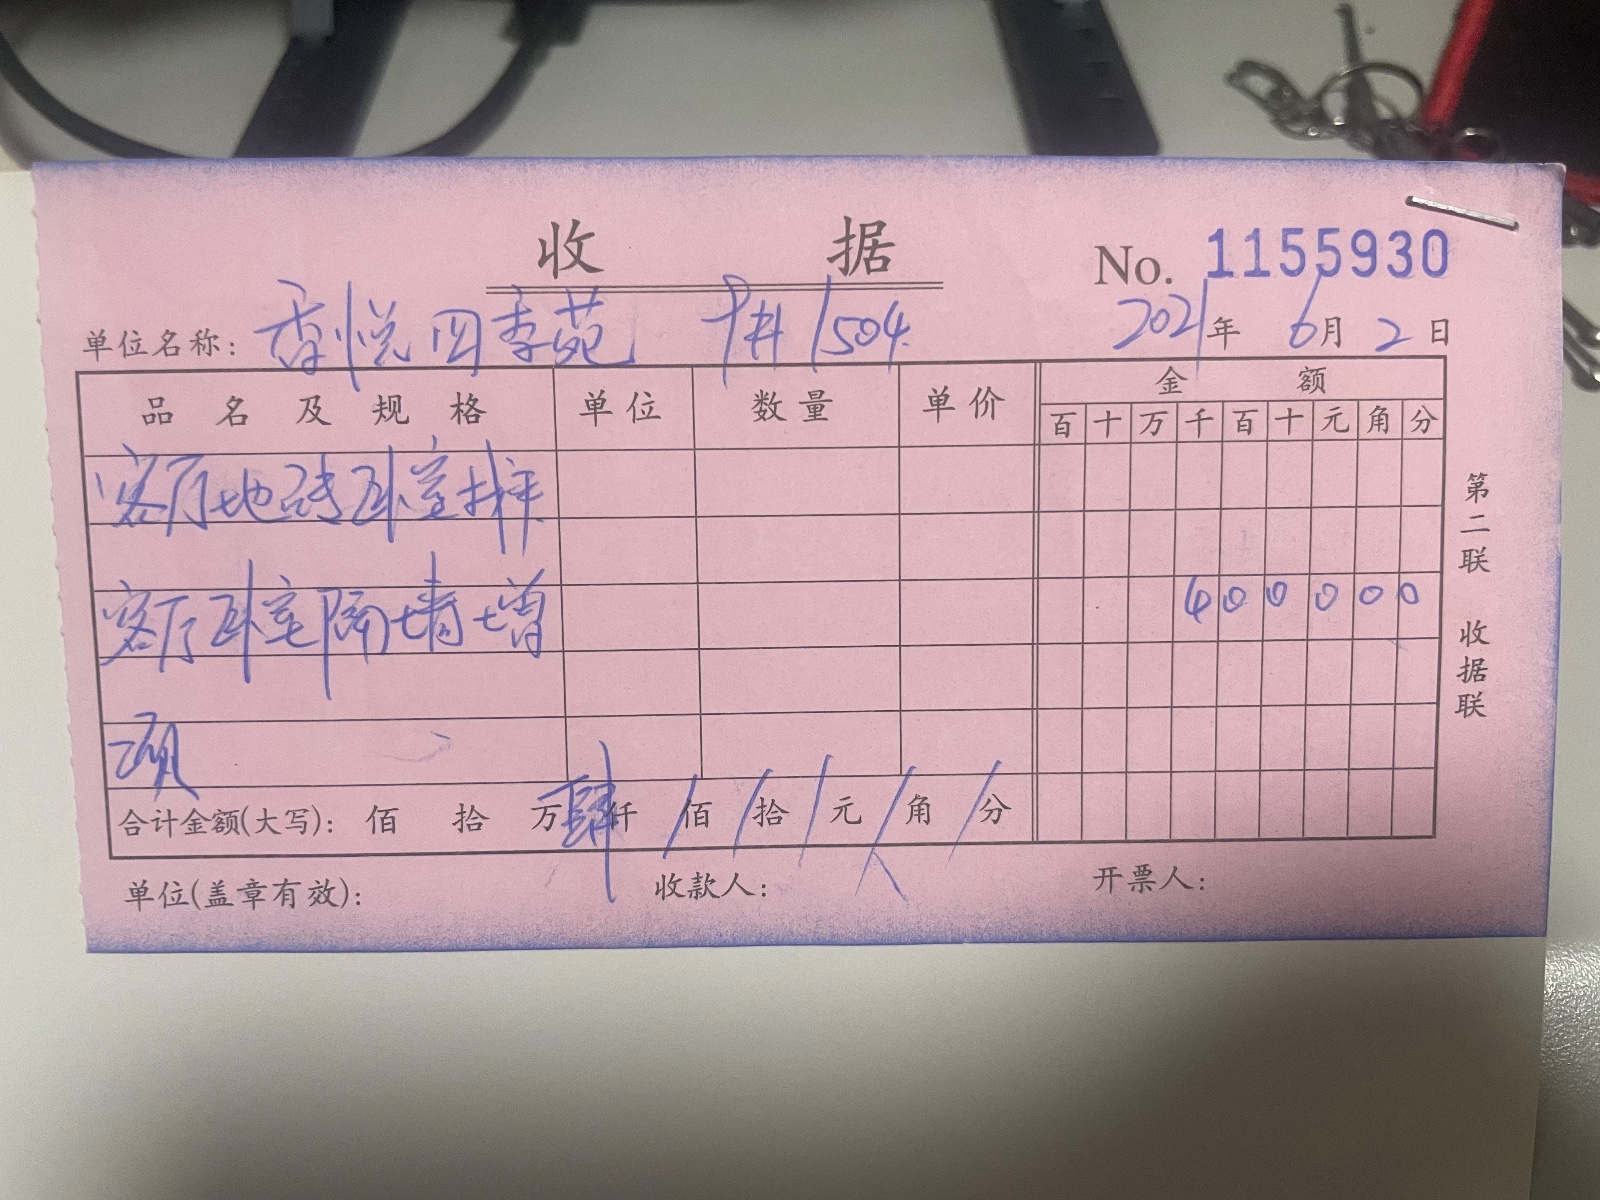 收据
No. 1155930
单位名称: 香悦四季苑 9# 1504
2021年 6月 2日
品名及规格 单位 数量 单价 金额
百 十 万 千 百 十 元 角 分
客厅地砖卧室拆
客厅卧室隔墙增 4 0 0 0 0 0
项
合计金额(大写): 佰 拾 万 肆仟 / 佰 / 拾 / 元 / 角 / 分
单位(盖章有效): 收款人: 开票人:
第二联 收据联